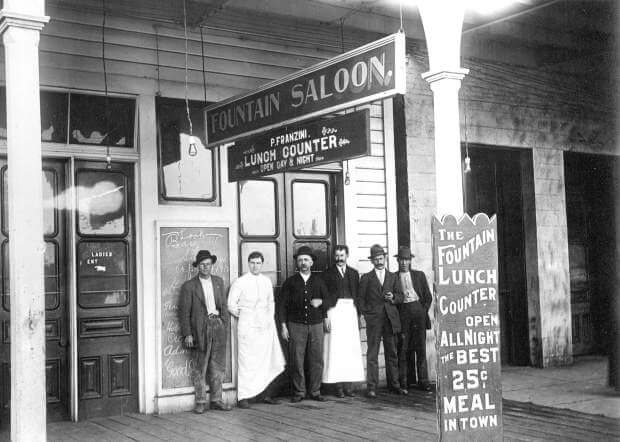 FOUNTAIN SALOON.
P. FRANZINI.
LUNCH COUNTER
OPEN DAY & NIGHT
LADIES
ENT
THE
FOUNTAIN
LUNCH
COUNTER
OPEN
ALL NIGHT
THE BEST
25¢
MEAL
IN TOWN